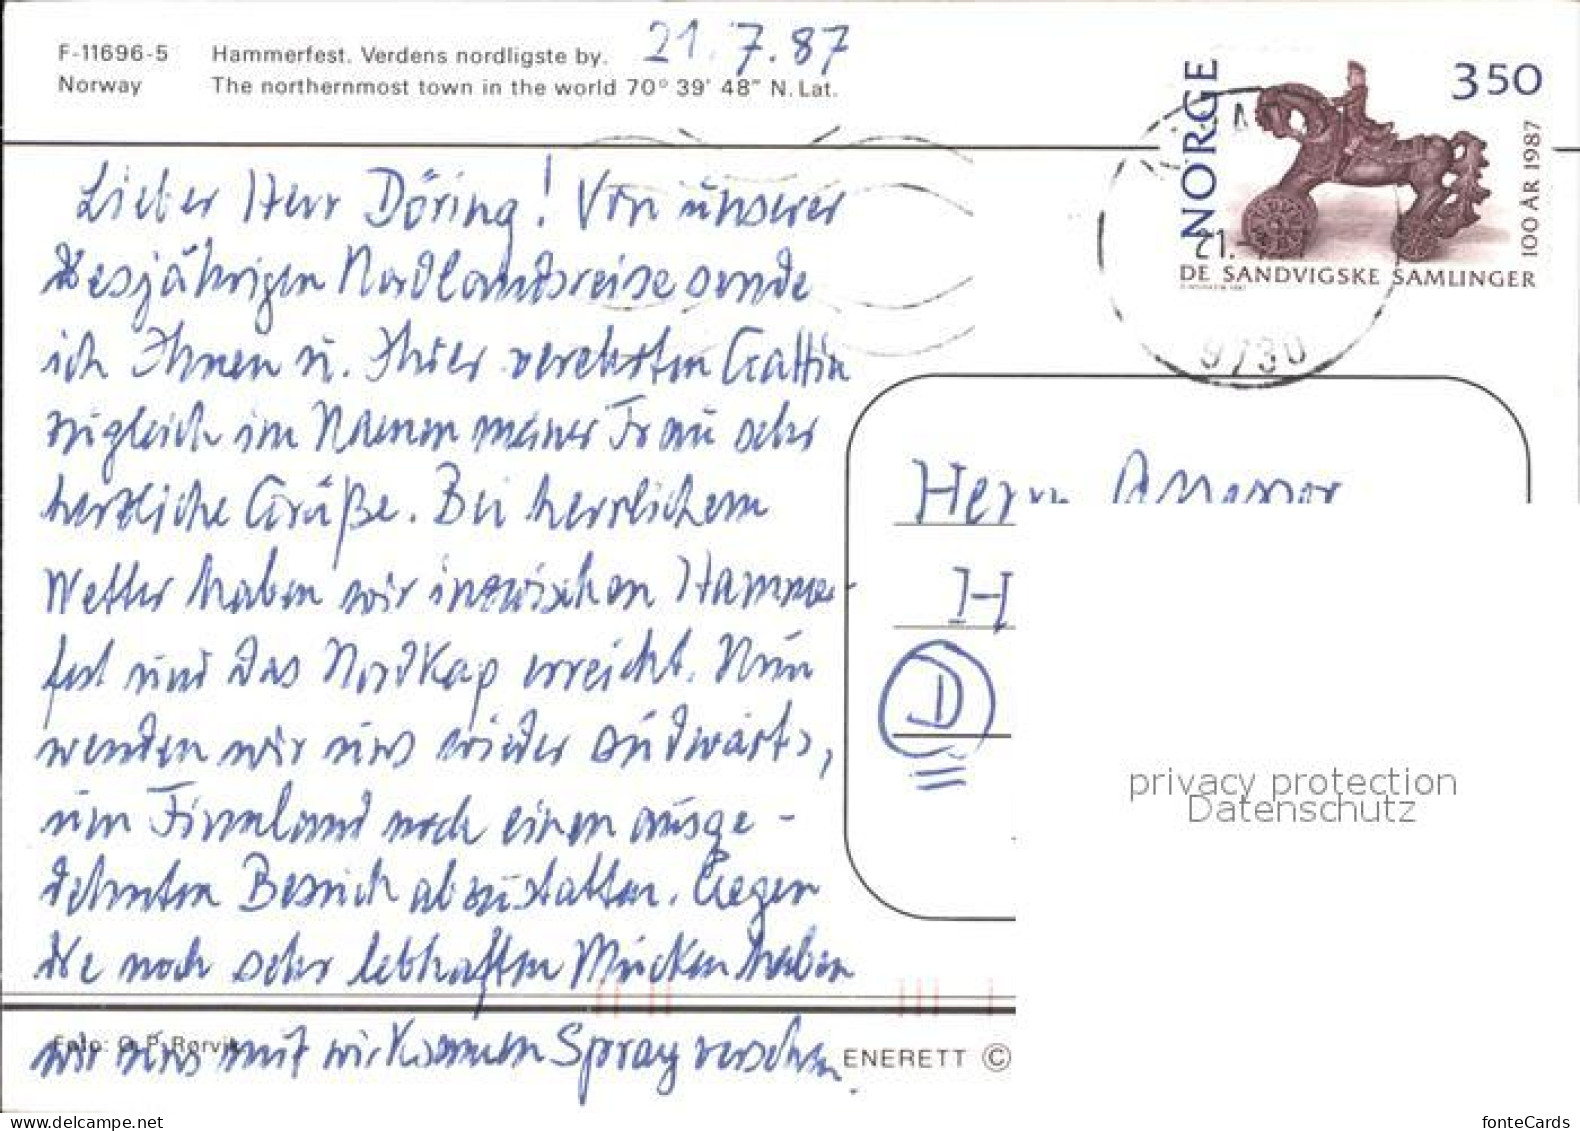 F-11696-5 Hammerfest. Verdens nordligste by. 21.7.87
Norway The northernmost town in the world 70° 39' 48" N. Lat.
NORGE
350
100 ÅR 1987
DE SANDVIGSKE SAMLINGER
21.
9730
Lieber Herr Döring! Von unserer
diesjährigen Nordlandsreise sende
ich Ihnen u. Ihrer verehrten Gattin
zugleich im Namen meiner Frau sehr
herzliche Grüße. Bei herrlichem
Wetter haben wir inzwischen Hammer-
fest und das Nordkap erreicht. Nun
wenden wir uns wieder südwärts,
um Finnland noch einen ausge-
dehnten Besuch abzustatten. Gegen
die noch sehr lebhaften Mücken haben
wir uns mit wirksamen Spray versehen.
Herrn
H
D
Foto: O. P. Rørvik
ENERETT ©
privacy protection
Datenschutz
www.delcampe.net
fonteCards